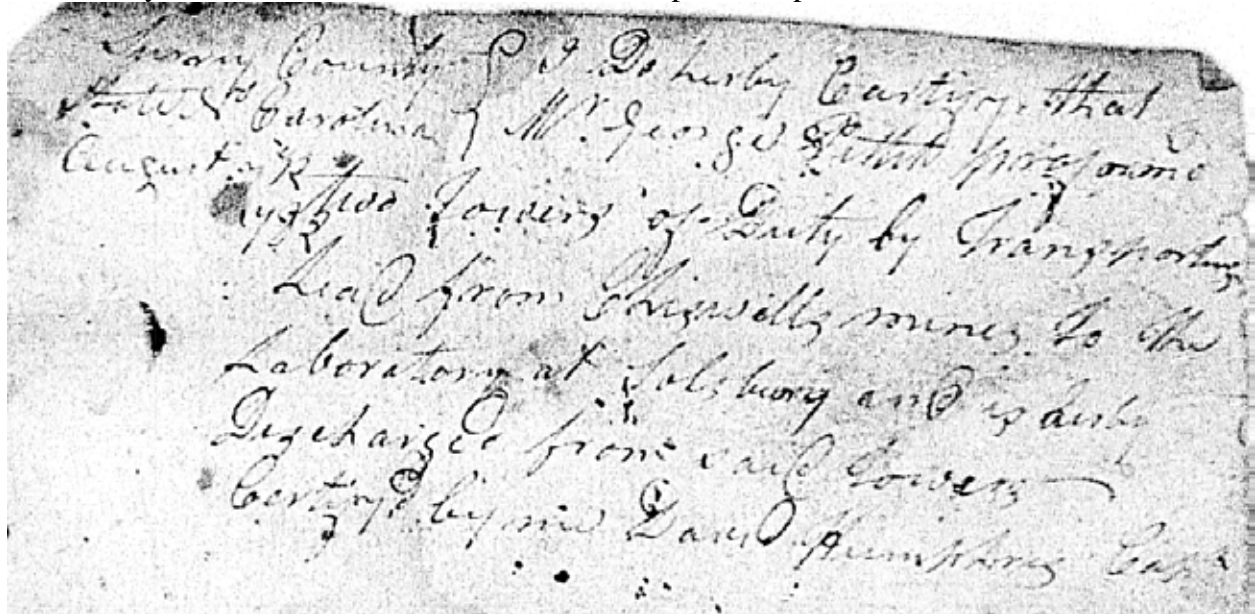 Surry County I Do hearby Certify that
State No Carolina Mr. George preforme'd
August 1782 two Towers of Duty by Transporting
Lead from Chiswells mines to the
Laboratory at Solsbury and is hearby
Discharged from said Towers
Certifyd by me David Humphris Capt